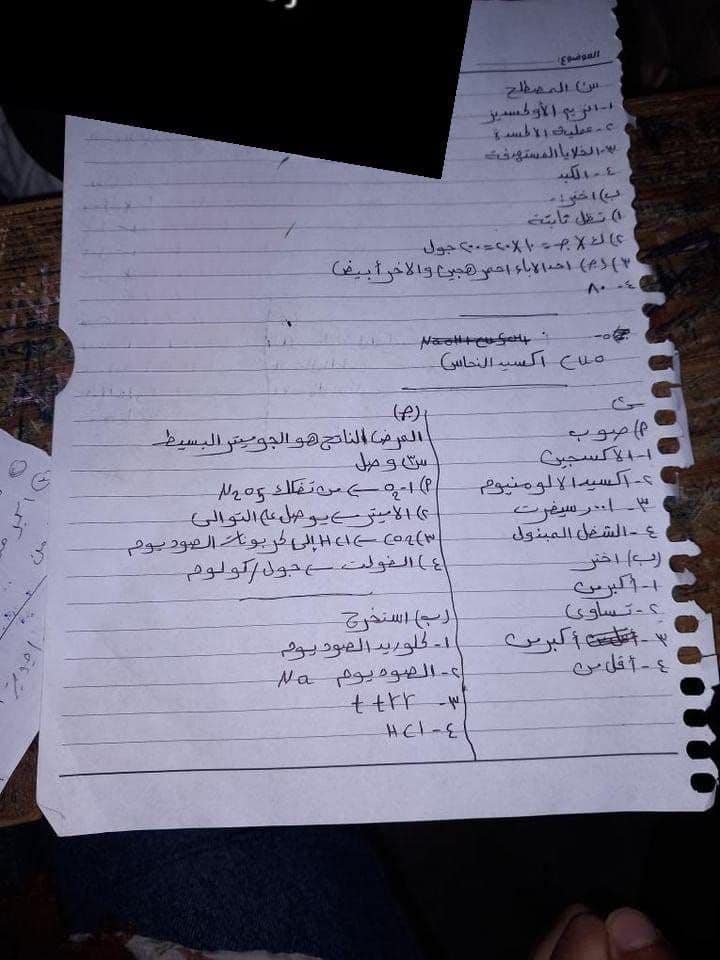 الموضوع:
س١) المصطلح
١- انزيم الأوكسديز
٢- عملية الاكسدة
٣- الخلايا المستهدفة
٤- الكبد
ب) اختر:-
١) تظل ثابتة
٢) ك X جـ = ١٠ X ٢٠ = ٢٠٠ جول
٣) (جـ) احد الاباء احمر هجين والاخر أبيض
٤- ٨٠
اكسيد النحاس
٢) صوب
١- الاكسجين
٢- اكسيد الالومنيوم
٤- الشغل المبذول
(ب) اختر
١- أكبر من
٢- تساوى
٣- أكبر من
٤- أقل من
(جـ)
العرض الناتج هو الجويتر البسيط
س٣) وصل
٢) ١- O2 ← من تفكك N2O5
٢) الاميتر ← يوصل على التوالى
٣) CO2 ← HCl إلى كربونات الصوديوم
٤) الفولت ← جول/كولوم
(ب) استخرج
١- كلوريد الصوديوم
٢- الصوديوم Na
٣- ttrr
٤- HCl